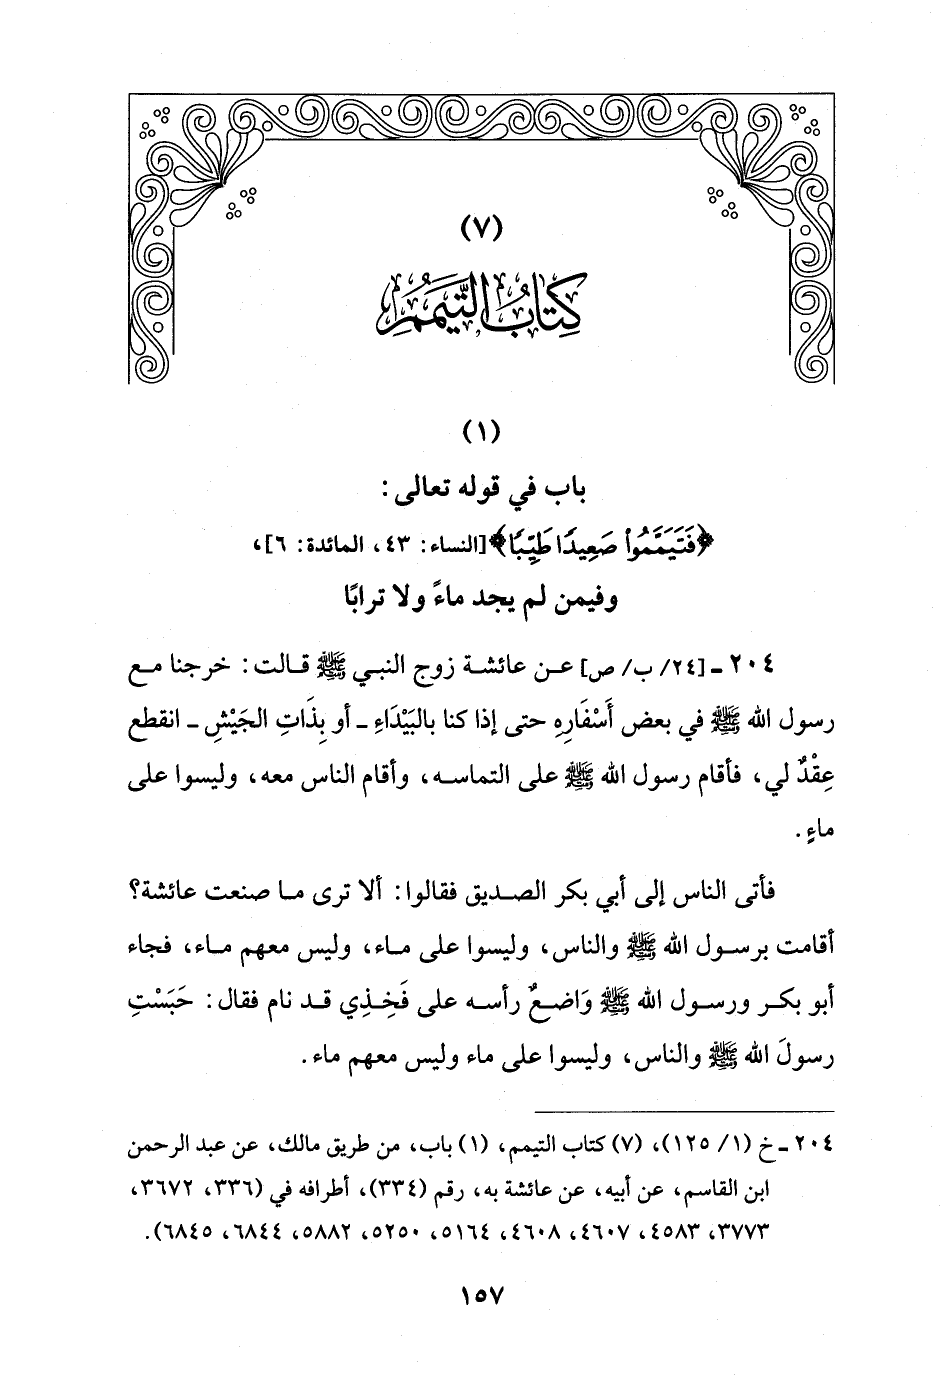 (٧)
كِتَابُ التَّيَمُّمِ
(١)
باب في قوله تعالى:
﴿فَتَيَمَّمُوا۟ صَعِيدًا طَيِّبًا﴾ [النساء: ٤٣، المائدة: ٦]،
وفيمن لم يجد ماءً ولا ترابًا
٢٠٤ ـ [٢٤/ ب/ ص] عن عائشة زوج النبي ﷺ قالت: خرجنا مع
رسول الله ﷺ في بعض أَسْفَارِهِ حتى إذا كنا بالبَيْدَاءِ ـ أو بِذَاتِ الجَيْشِ ـ انقطع
عِقْدٌ لي، فأقام رسول الله ﷺ على التماسه، وأقام الناس معه، وليسوا على
ماءٍ.
فأتى الناس إلى أبي بكر الصديق فقالوا: ألا ترى ما صنعت عائشة؟
أقامت برسول الله ﷺ والناس، وليسوا على ماء، وليس معهم ماء، فجاء
أبو بكر ورسول الله ﷺ وَاضعٌ رأسه على فَخِذِي قد نام فقال: حَبَسْتِ
رسولَ الله ﷺ والناس، وليسوا على ماء وليس معهم ماء.
٢٠٤ ـ خ (١/ ١٢٥)، (٧) كتاب التيمم، (١) باب، من طريق مالك، عن عبد الرحمن
ابن القاسم، عن أبيه، عن عائشة به، رقم (٣٣٤)، أطرافه في (٣٣٦، ٣٦٧٢،
٣٧٧٣، ٤٥٨٣، ٤٦٠٧، ٤٦٠٨، ٥١٦٤، ٥٢٥٠، ٥٨٨٢، ٦٨٤٤، ٦٨٤٥).
١٥٧